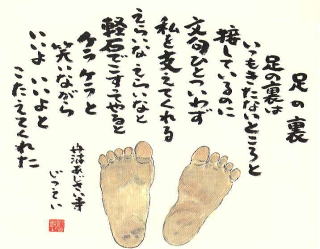 足の裏
足の裏は
いつもきたないところと
接しているのに
文句ひとついわず
私を支えてくれる
えらいなえらいなと
軽石でこすってやると
ケラケラと
笑いながら
いいよいいよと
こたえてくれた
丹波あじさい寺
じってい